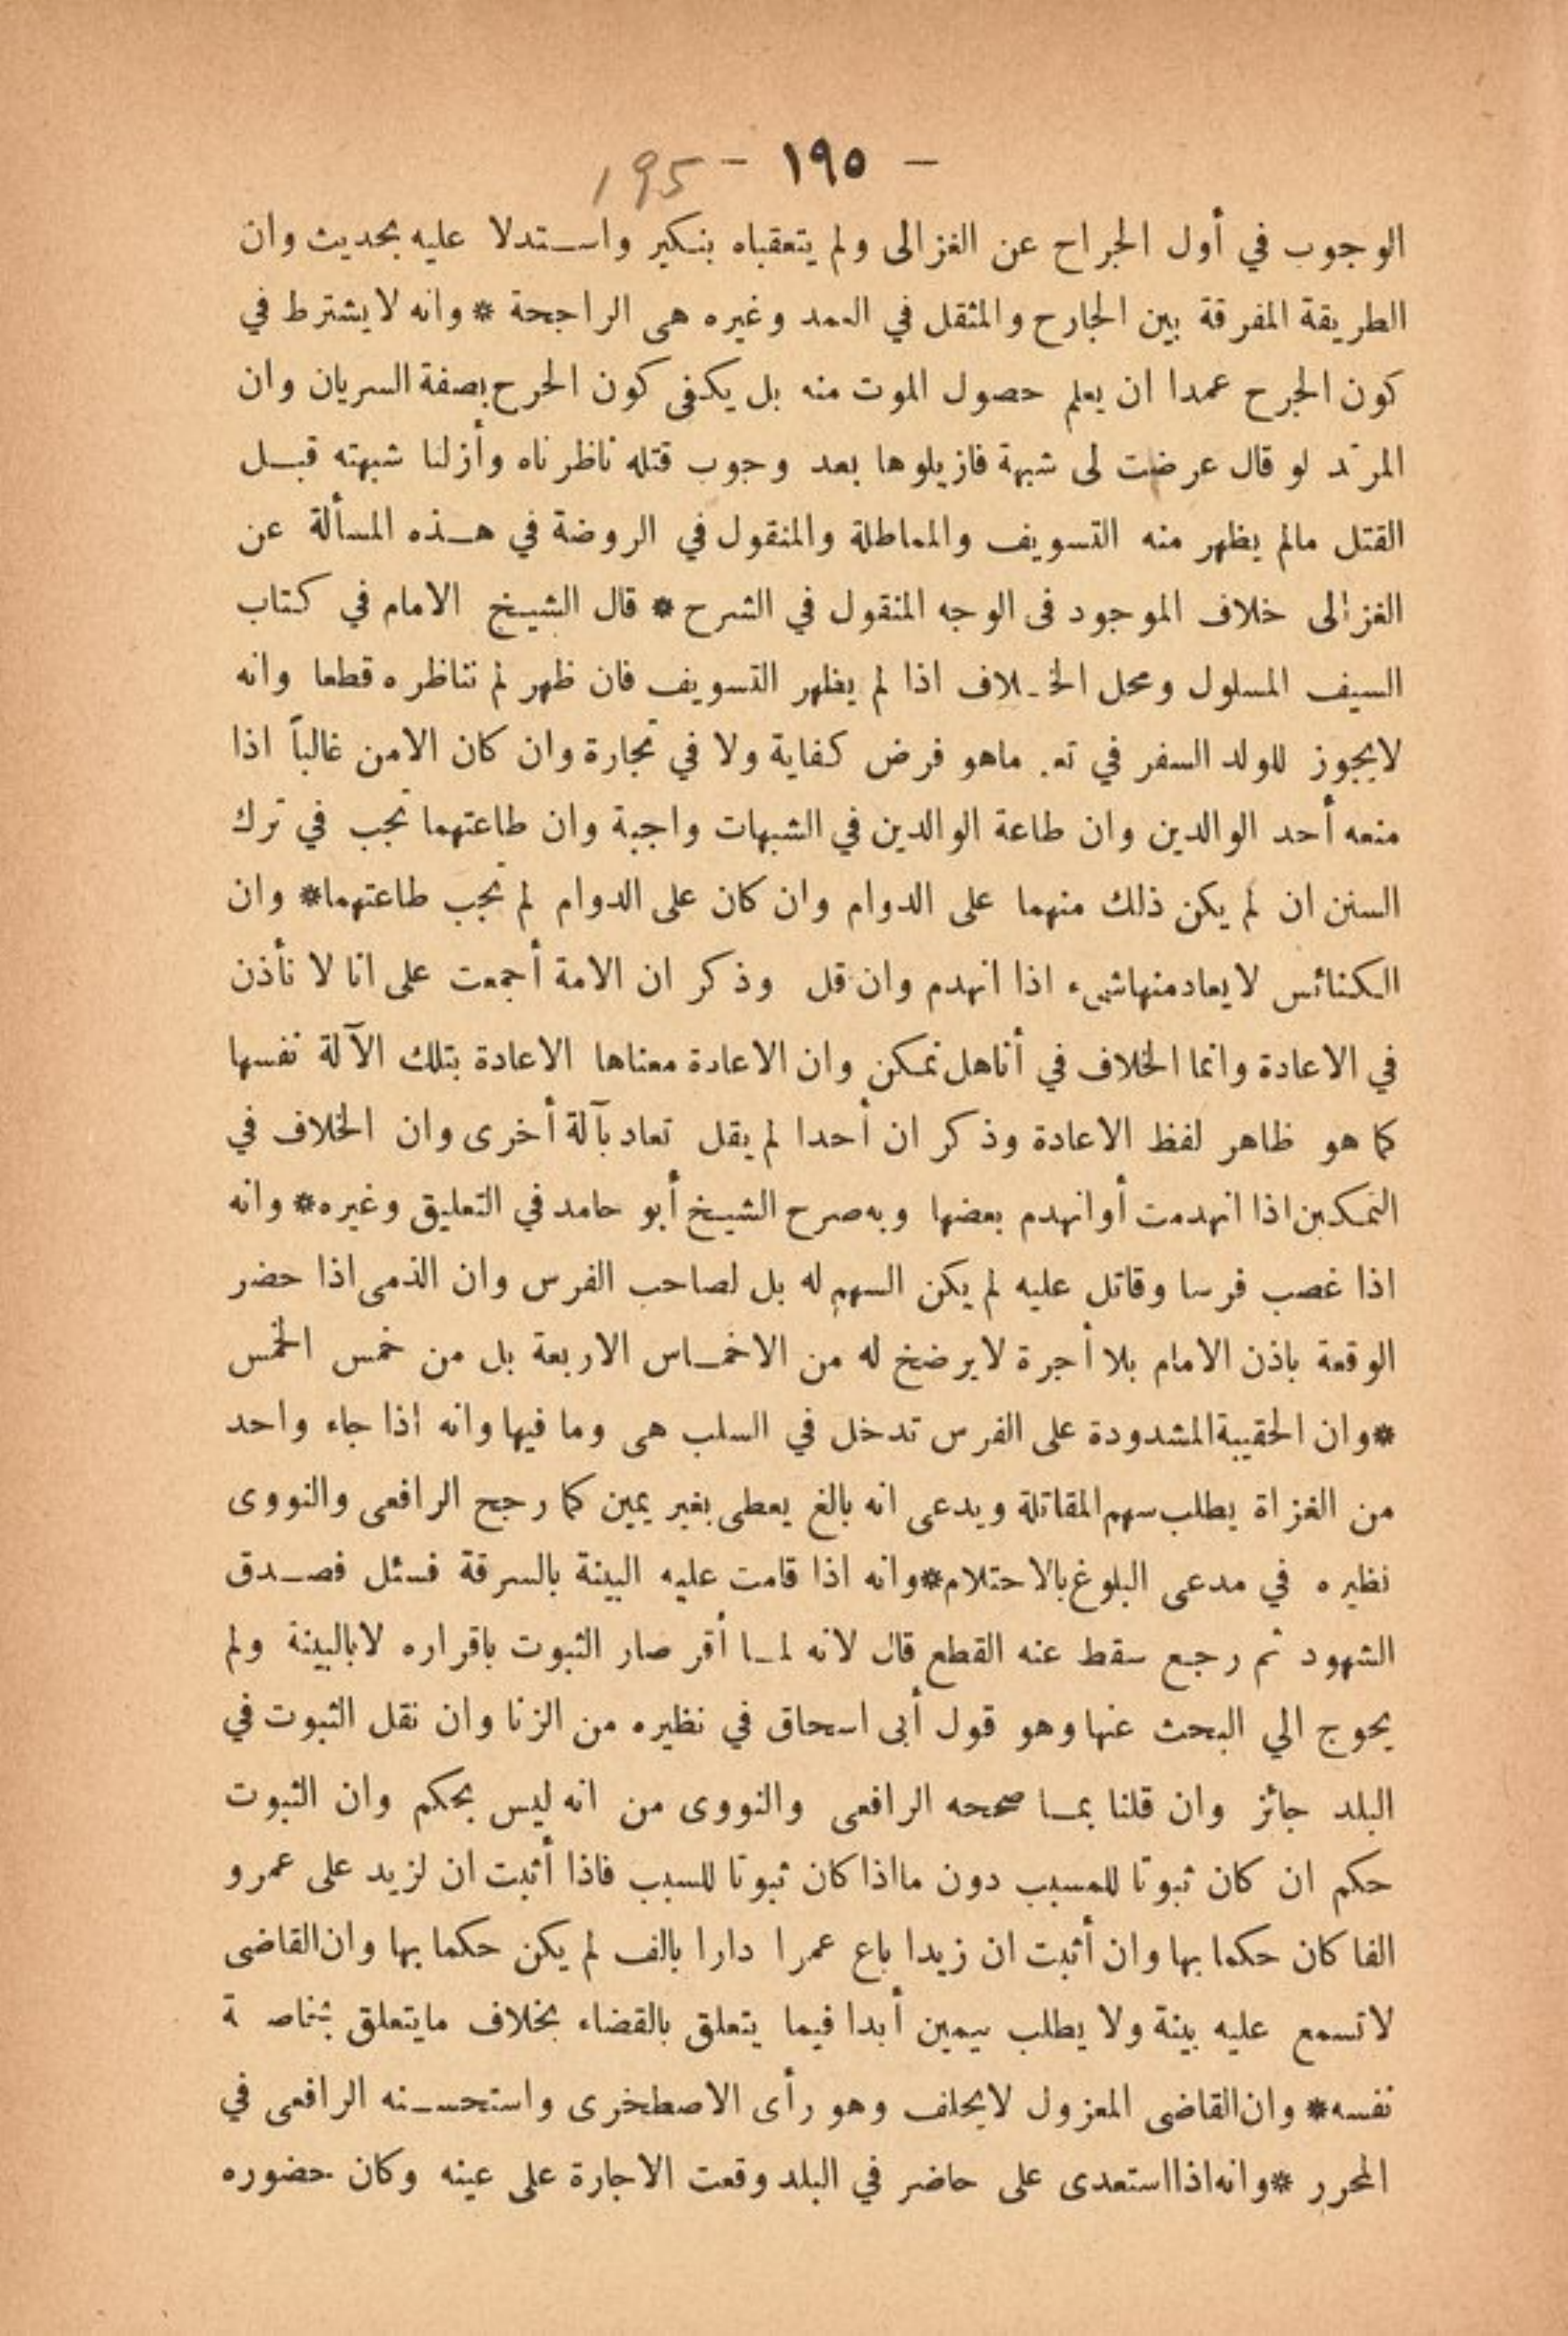 — ١٩٥ — 195
الوجوب في أول الجراح عن الغزالى ولم يتعقباه بنكير واستدلا عليه بحديث وان
الطريقة المفرقة بين الجارح والمثقل في العمد وغيره هى الراجحة * وانه لايشترط في
كون الجرح عمدا ان يعلم حصول الموت منه بل يكفى كون الحرح بصفة السريان وان
المرتد لو قال عرضت لى شبهة فازيلوها بعد وجوب قتله ناظرناه وأزلنا شبهته قبل
القتل مالم يظهر منه التسويف والمماطلة والمنقول في الروضة في هذه المسألة عن
الغزالى خلاف الموجود فى الوجه المنقول في الشرح * قال الشيخ الامام في كتاب
السيف المسلول ومحل الخلاف اذا لم يظهر التسويف فان ظهر لم نناظره قطعا وانه
لايجوز للولد السفر في تع. ماهو فرض كفاية ولا في تجارة وان كان الامن غالباً اذا
منعه أحد الوالدين وان طاعة الوالدين في الشبهات واجبة وان طاعتهما تجب في ترك
السنن ان لم يكن ذلك منهما على الدوام وان كان على الدوام لم تجب طاعتهما* وان
الكنائس لايعادمنهاشىء اذا انهدم وان قل وذكر ان الامة أجمعت على انا لا نأذن
في الاعادة وانما الخلاف في أناهل نمكن وان الاعادة معناها الاعادة بتلك الآلة نفسها
كما هو ظاهر لفظ الاعادة وذكر ان أحدا لم يقل تعاد بآلة أخرى وان الخلاف في
التمكين اذا انهدمت أوانهدم بعضها وبه صرح الشيخ أبو حامد في التعليق وغيره* وانه
اذا غصب فرسا وقاتل عليه لم يكن السهم له بل لصاحب الفرس وان الذمى اذا حضر
الوقعة باذن الامام بلا أجرة لايرضخ له من الاخماس الاربعة بل من خمس الخمس
*وان الحقيبة المشدودة على الفرس تدخل في السلب هى وما فيها وانه اذا جاء واحد
من الغزاة يطلب سهم المقاتلة ويدعى انه بالغ يعطى بغير يمين كما رجح الرافعى والنووى
نظيره في مدعى البلوغ بالاحتلام*وانه اذا قامت عليه البينة بالسرقة فسئل فصدق
الشهود ثم رجع سقط عنه القطع قال لانه لما أقر صار الثبوت باقراره لابالبينة ولم
يحوج الي البحث عنها وهو قول أبى اسحاق في نظيره من الزنا وان نقل الثبوت في
البلد جائز وان قلنا بما صححه الرافعى والنووى من انه ليس بحكم وان الثبوت
حكم ان كان ثبوتا للمسبب دون مااذا كان ثبوتا للسبب فاذا أثبت ان لزيد على عمرو
الفا كان حكما بها وان أثبت ان زيدا باع عمرا دارا بالف لم يكن حكما بها وان القاضى
لاتسمع عليه بينة ولا يطلب بيمين أبدا فيما يتعلق بالقضاء بخلاف مايتعلق بخاصة
نفسه* وان القاضى المعزول لايحلف وهو رأى الاصطخرى واستحسنه الرافعى في
المحرر *وانه اذااستعدى على حاضر في البلد وقعت الاجارة على عينه وكان حضوره